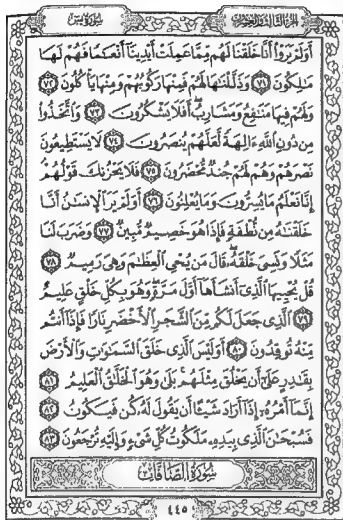 سورة يس
الجزء الثالث والعشرون
أَوَلَمْ يَرَوْا أَنَّا خَلَقْنَا لَهُم مِّمَّا عَمِلَتْ أَيْدِينَا أَنْعَامًا فَهُمْ لَهَا
مَالِكُونَ ٧١ وَذَلَّلْنَاهَا لَهُمْ فَمِنْهَا رَكُوبُهُمْ وَمِنْهَا يَأْكُلُونَ ٧٢
وَلَهُمْ فِيهَا مَنَافِعُ وَمَشَارِبُ أَفَلَا يَشْكُرُونَ ٧٣ وَاتَّخَذُوا
مِن دُونِ اللَّهِ ءَالِهَةً لَّعَلَّهُمْ يُنصَرُونَ ٧٤ لَا يَسْتَطِيعُونَ
نَصْرَهُمْ وَهُمْ لَهُمْ جُندٌ مُّحْضَرُونَ ٧٥ فَلَا يَحْزُنكَ قَوْلُهُمْ
إِنَّا نَعْلَمُ مَا يُسِرُّونَ وَمَا يُعْلِنُونَ ٧٦ أَوَلَمْ يَرَ الْإِنسَانُ أَنَّا
خَلَقْنَاهُ مِن نُّطْفَةٍ فَإِذَا هُوَ خَصِيمٌ مُّبِينٌ ٧٧ وَضَرَبَ لَنَا
مَثَلًا وَنَسِيَ خَلْقَهُ قَالَ مَن يُحْيِ الْعِظَامَ وَهِيَ رَمِيمٌ ٧٨
قُلْ يُحْيِيهَا الَّذِي أَنشَأَهَا أَوَّلَ مَرَّةٍ وَهُوَ بِكُلِّ خَلْقٍ عَلِيمٌ
٧٩ الَّذِي جَعَلَ لَكُم مِّنَ الشَّجَرِ الْأَخْضَرِ نَارًا فَإِذَا أَنتُم
مِّنْهُ تُوقِدُونَ ٨٠ أَوَلَيْسَ الَّذِي خَلَقَ السَّمَاوَاتِ وَالْأَرْضَ
بِقَادِرٍ عَلَىٰ أَن يَخْلُقَ مِثْلَهُم بَلَىٰ وَهُوَ الْخَلَّاقُ الْعَلِيمُ ٨١
إِنَّمَا أَمْرُهُ إِذَا أَرَادَ شَيْئًا أَن يَقُولَ لَهُ كُن فَيَكُونُ ٨٢
فَسُبْحَانَ الَّذِي بِيَدِهِ مَلَكُوتُ كُلِّ شَيْءٍ وَإِلَيْهِ تُرْجَعُونَ ٨٣
سُورَةُ الصَّافَّاتِ
٤٤٥